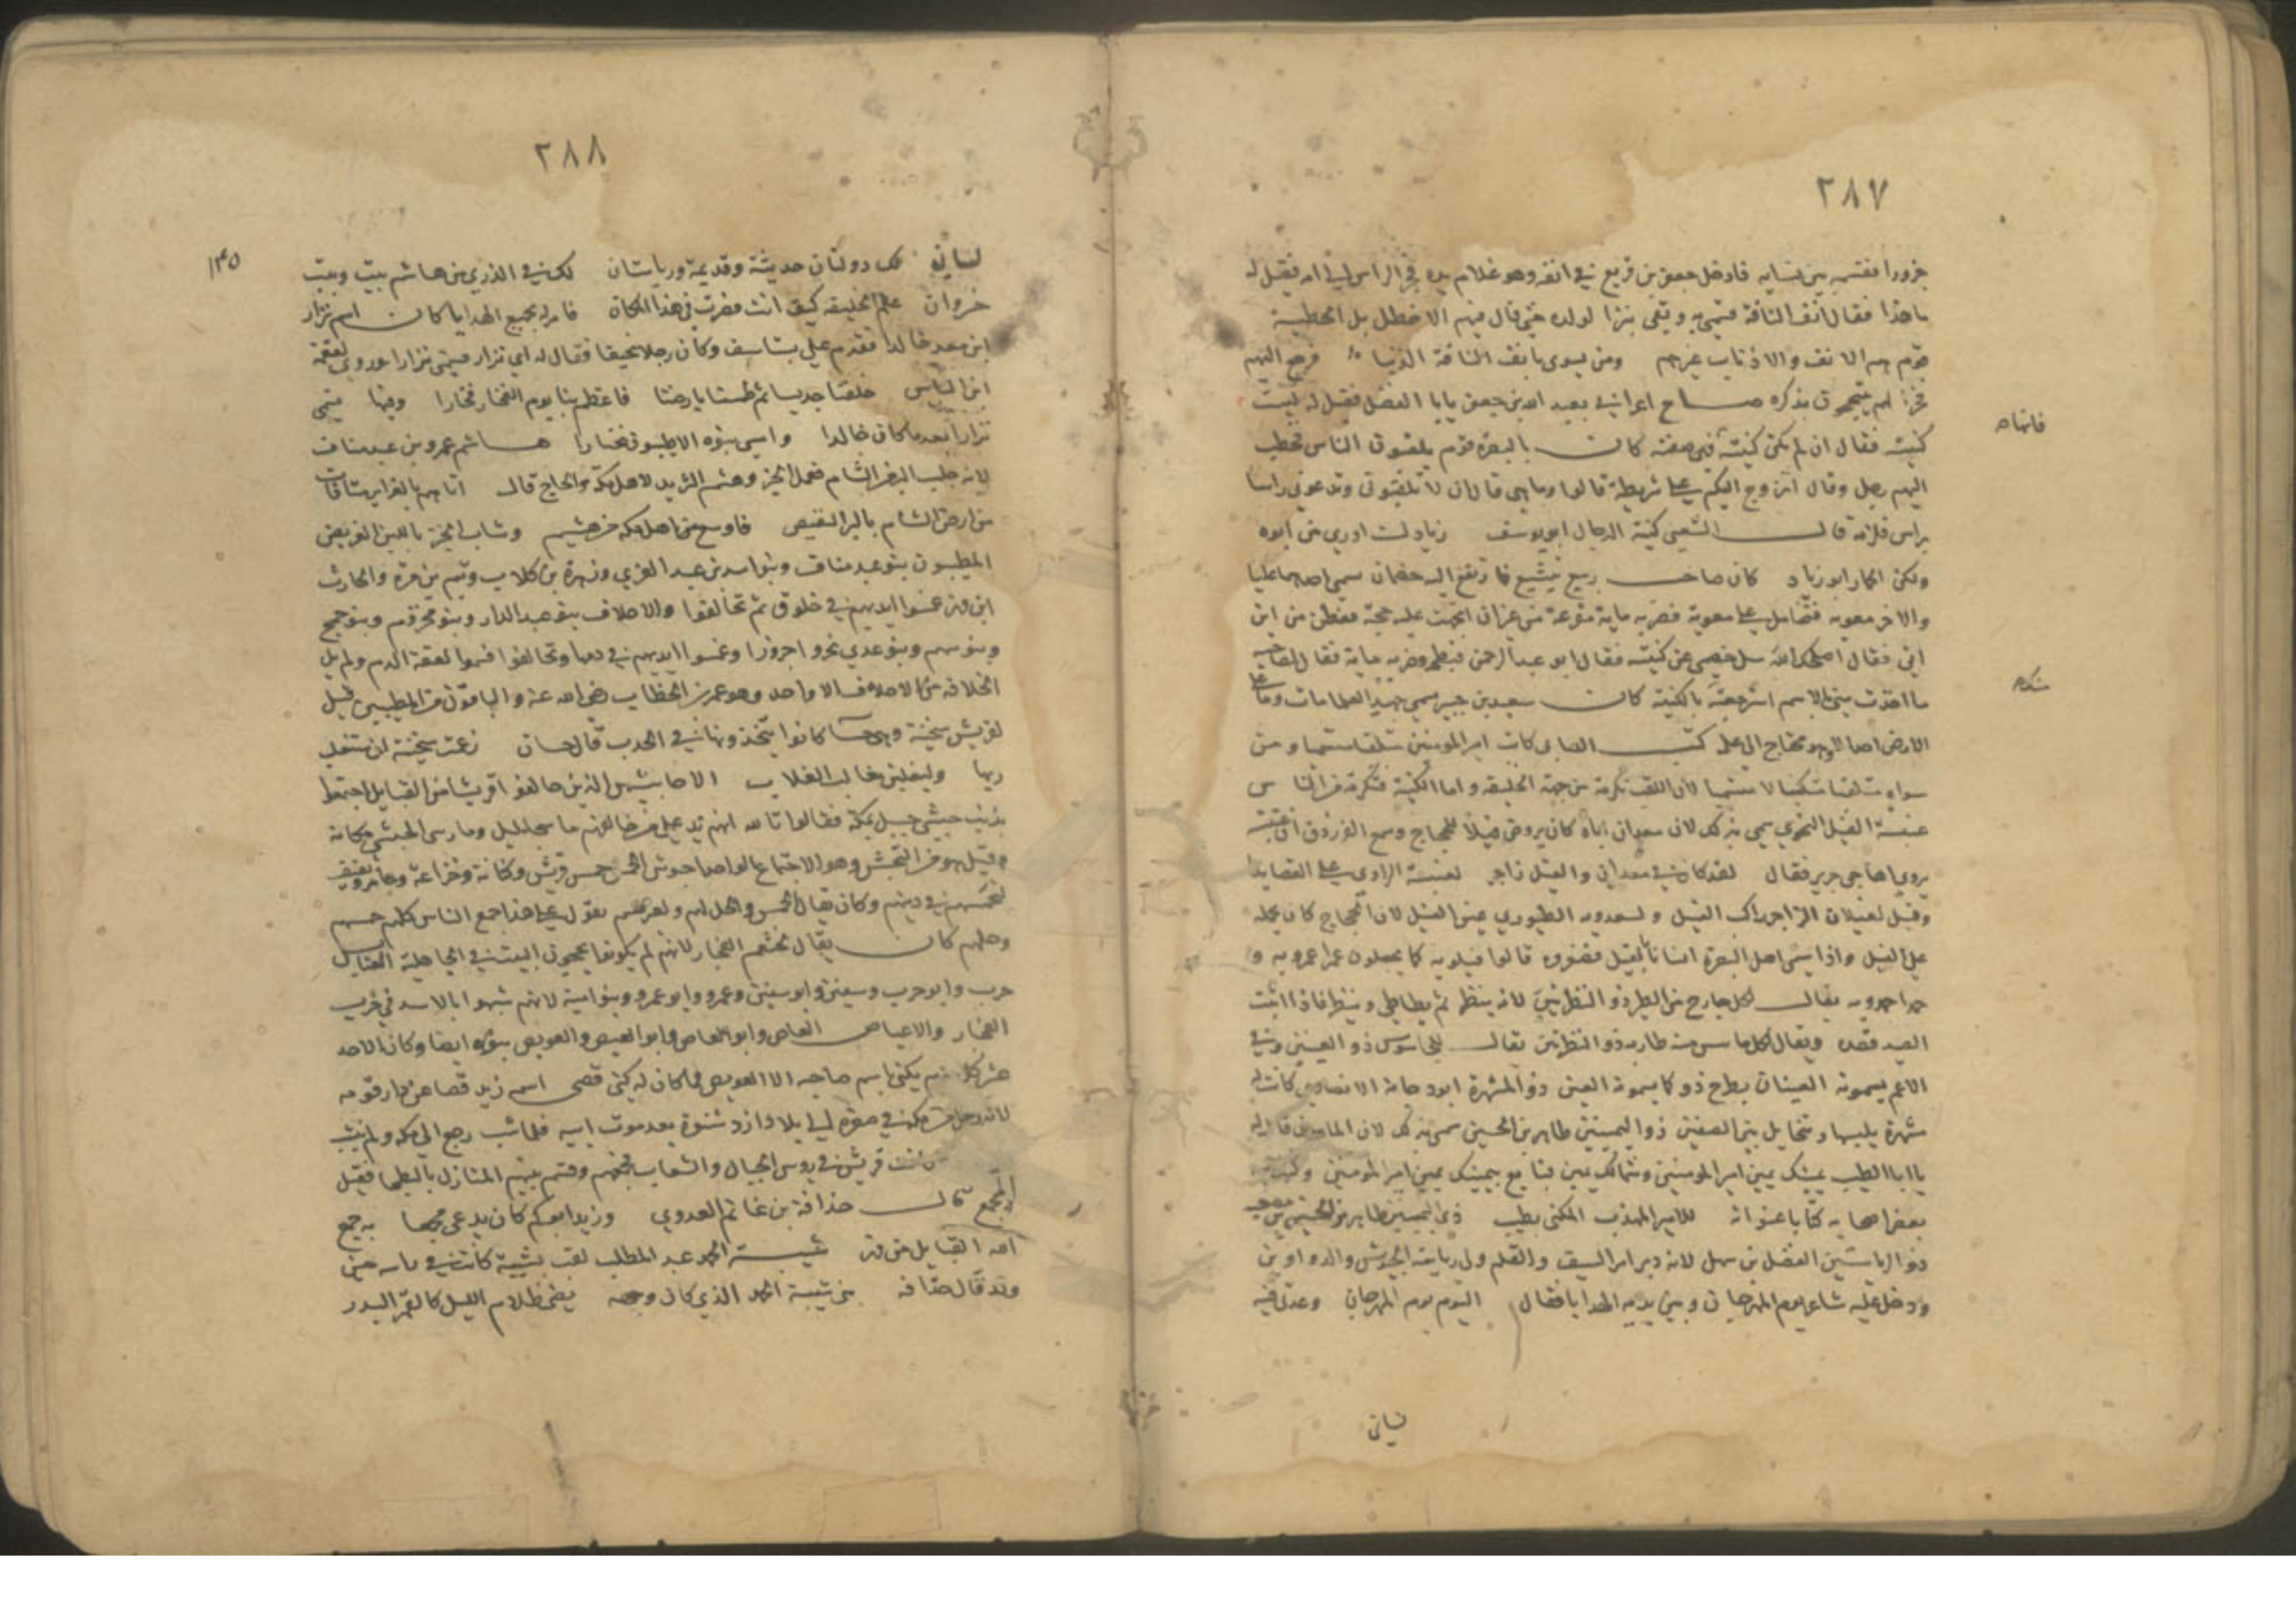 ٢٨٧
جزورا فقسمه بين نسايه فادخل جعفر بن قريع في انفه وهو غلام يده فجر الراس الى امه فقيل له
ما هذا فقال انف الناقة فسمي به وبقي نبزا لولده حتى قال فيهم الاخطل بل الحطيئة
قوم هم الانف والاذناب غيرهم ومن يسوي بانف الناقة الذنبا فرجع اليهم
فخرا لهم يتبجحون بذكره صاح اعرابي بعبد الله بن جعفر يابا الفضل فقيل له ليست
كنيته فقال ان لم تكن كنيته فهي صفته كان بالبصرة قوم يلقبون الناس فخطب
فانها
اليهم رجل وقال اتزوج اليكم على شريطة قالوا وما هي قال ان لا تلقبوني وتدعوني راسا
براس قال الشعبي كنية الدجال ابو يوسف زياد لست ادري من ابوه
ولكن الحمار ابو زياد كان صاحب ربع يتشيع فارتفع اليه خصمان سمي احدهما عليا
والاخر معوية فتحامل على معوية فضربه ماية مقرعة من غير ان اتجهت عليه حجة ففطن من اين
اتي فقال اصلحك الله سل خصمي عن كنيته فقال ابو عبد الرحمن فبطحه وضربه ماية فقال لصاحبه
ما اخذت مني بالاسم استرجعته بالكنية كان سعيد بن جبير يسمي جهبذ العلما مات وما على
الارض احد الا وهو محتاج الى علمه كتب الصابي كاتب امير المومنين متلقبا متسميا ومن
سواه متلقبا متكنيا لا متسميا لان اللقب تكرمة من جهة الخليفة واما الكنية فتكرمة من الناس
عنبسة الفيل النحوي سمي بذلك لان معدان اباه كان يروض فيلا للحجاج وسمع الفرزدق ان عنبسة
يروي اهاجي جرير فقال لقد كان في معدان والفيل زاجر لعنبسة الراوي علي القصايدا
وقيل لغيلان الزاجر راكب الفيل ولسعدويه الطنبوري عين الفيل لان الحجاج كان يحمله
على الفيل واذا سمي اهل البصرة انسانا بفيل فصغروه قالوا فيلويه كما يجعلون عمرا عمرويه و
حمدا حمدويه يقال لكل جارح من الطير ذو النظرتين لانه ينظر ثم يطاطي وينظر فاذا اثبت
الصيد قصده ويقال
الاعم يسمونه العينان بطرح ذو كما يسمونه العين ذو المشهرة ابو دجانة الانصاري كانت له
مشهرة يلبسها وتخايل بين الصفين ذو اليمينين طاهر بن الحسين سمي بذلك لان المامون قال له
يا ابا الطيب يمينك يمين امير المومنين وشمالك يمين فبايع بيمينك يمين امير المومنين وكتب
بعض اصحابه كتابا عنوانه للامير المهذب المكنى بطيب ذي اليمينين طاهر بن الحسين بن مصعب
ذو الرياستين الفضل بن سهل لانه دبر امر السيف والقلم وولي رياسة الجيوش والدواوين
ودخل عليه شاعر يوم المهرجان وبين يديه الهدايا فقال اليوم يوم المهرجان وهديتي فيه
لساني
٢٨٨
١٤٥
لسانيه لك دولتان حديثة وقديمة ورياستان لك في الذرى من هاشم بيت وبيت
خسروان علم الخليفة كيف انت فصرت في هذا المكان فامر له بجميع الهدايا كان اسم نزار
ابن معد خالدا فقدم على بستاسف وكان رجلا نحيفا فقال له اي نزار فسمي نزارا وروي لقمعة
ابن الياس خلفنا جديسا ثم طسما بارضنا فاعظم بنا يوم الفخار فخارا وفينا يسمي
نزارا بعد ما كان خالدا وامسى بنوه الاطيبون خيارا هاشم عمرو بن عبد مناف
لانه جلب البر من الشام فعمل الخبز وهشم الثريد لاهل مكة والحاج قال اتاهم بالغراير متاقات
من ارض الشام بالبر النفيض فاوسع من اهل مكة من هشيم وشاب الخبز باللبن الغريض
المطيبون بنو عبد مناف وبنو اسد بن عبد العزي وزهرة بن كلاب وتيم بن مرة والحارث
ابن فهر غمسوا ايديهم في خلوق ثم تحالفوا والاحلاف بنو عبد الدار وبنو مخزوم وبنو جمح
وبنو سهم وبنو عدي نحروا جزورا وغمسوا ايديهم في دمها وتحالفوا فسموا لعقة الدم ولم يل
الخلافة من الاحلاف الا واحد وهو عمر بن الخطاب رضي الله عنه والباقون من المطيبين قيل
لقريش سخينة وهي حسا كانوا يتخذونها في الجدب قال حسان زعمت سخينة ان ستغلب
ربها وليغلبن مغالب الغلاب الاحابيش الذين حالفوا قريشا من القبايل اجتمعوا
بذنب حبشي جبل بمكة فقالوا تالله انهم يد على من خالفهم ما سجا ليل وما رسى الحبشي مكانه
وقيل هو من التحبش وهو الاجتماع الواحد احبوش الحمس حمس قريش وكنانة وخزاعة وعامر وثقيف
لتحمسهم في دينهم وكان يقال الحمس والحل لهم ولغيرهم يقول على هذا جمع الناس كلهم حمسهم
وحلهم كان يقال لخثعم الفجار لانهم لم يكونوا يحجون البيت في الجاهلية العنابس
حرب وابو حرب وسفين وابو سفين وعمرو وابو عمرو وبنو امية لانهم شبهوا بالاسد في حرب
الفجار والاعياص العاص وابو العاص والعيص وابو العيص والعويص بنوه ايضا وكان الاحد
عشر كل منهم يكنى باسم صاحبه الا العويص فما كان له كني قصي اسمه زيد قصا عن دار قومه
لانه حمل من مكة في صغره الى بلاد ازد شنوة بعد موت ابيه فلما شب رجع الى مكة ولم ينشب
كانت قريش في روس الجبال والشعاب فجمعهم وقسم بينهم المنازل بالبطحا فقيل
له المجمع قال حذافة بن غانم العدوي وزيد ابوكم كان يدعى مجمعا به جمع
الله القبايل من فهر شيبة الحمد عبد المطلب لقب بشيبة كانت في راسه حين
وقد قال حذافه بني شيبة الحمد الذي كان وجهه يضي ظلام الليل كالقمر البدر